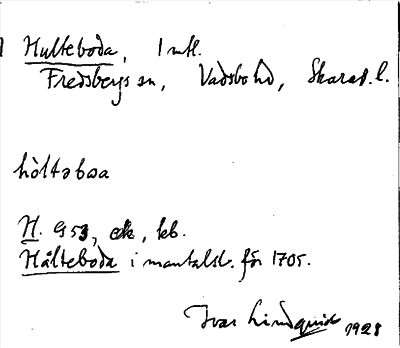 Hulteboda, 1 mtl.
Fredsbergs sn, Vadsbo hd, Skarab. l.
hòltəbωa
H. G 53, ek, kb.
Hålteboda i mantalsl. för 1705.
Ivar Lindquist 1928